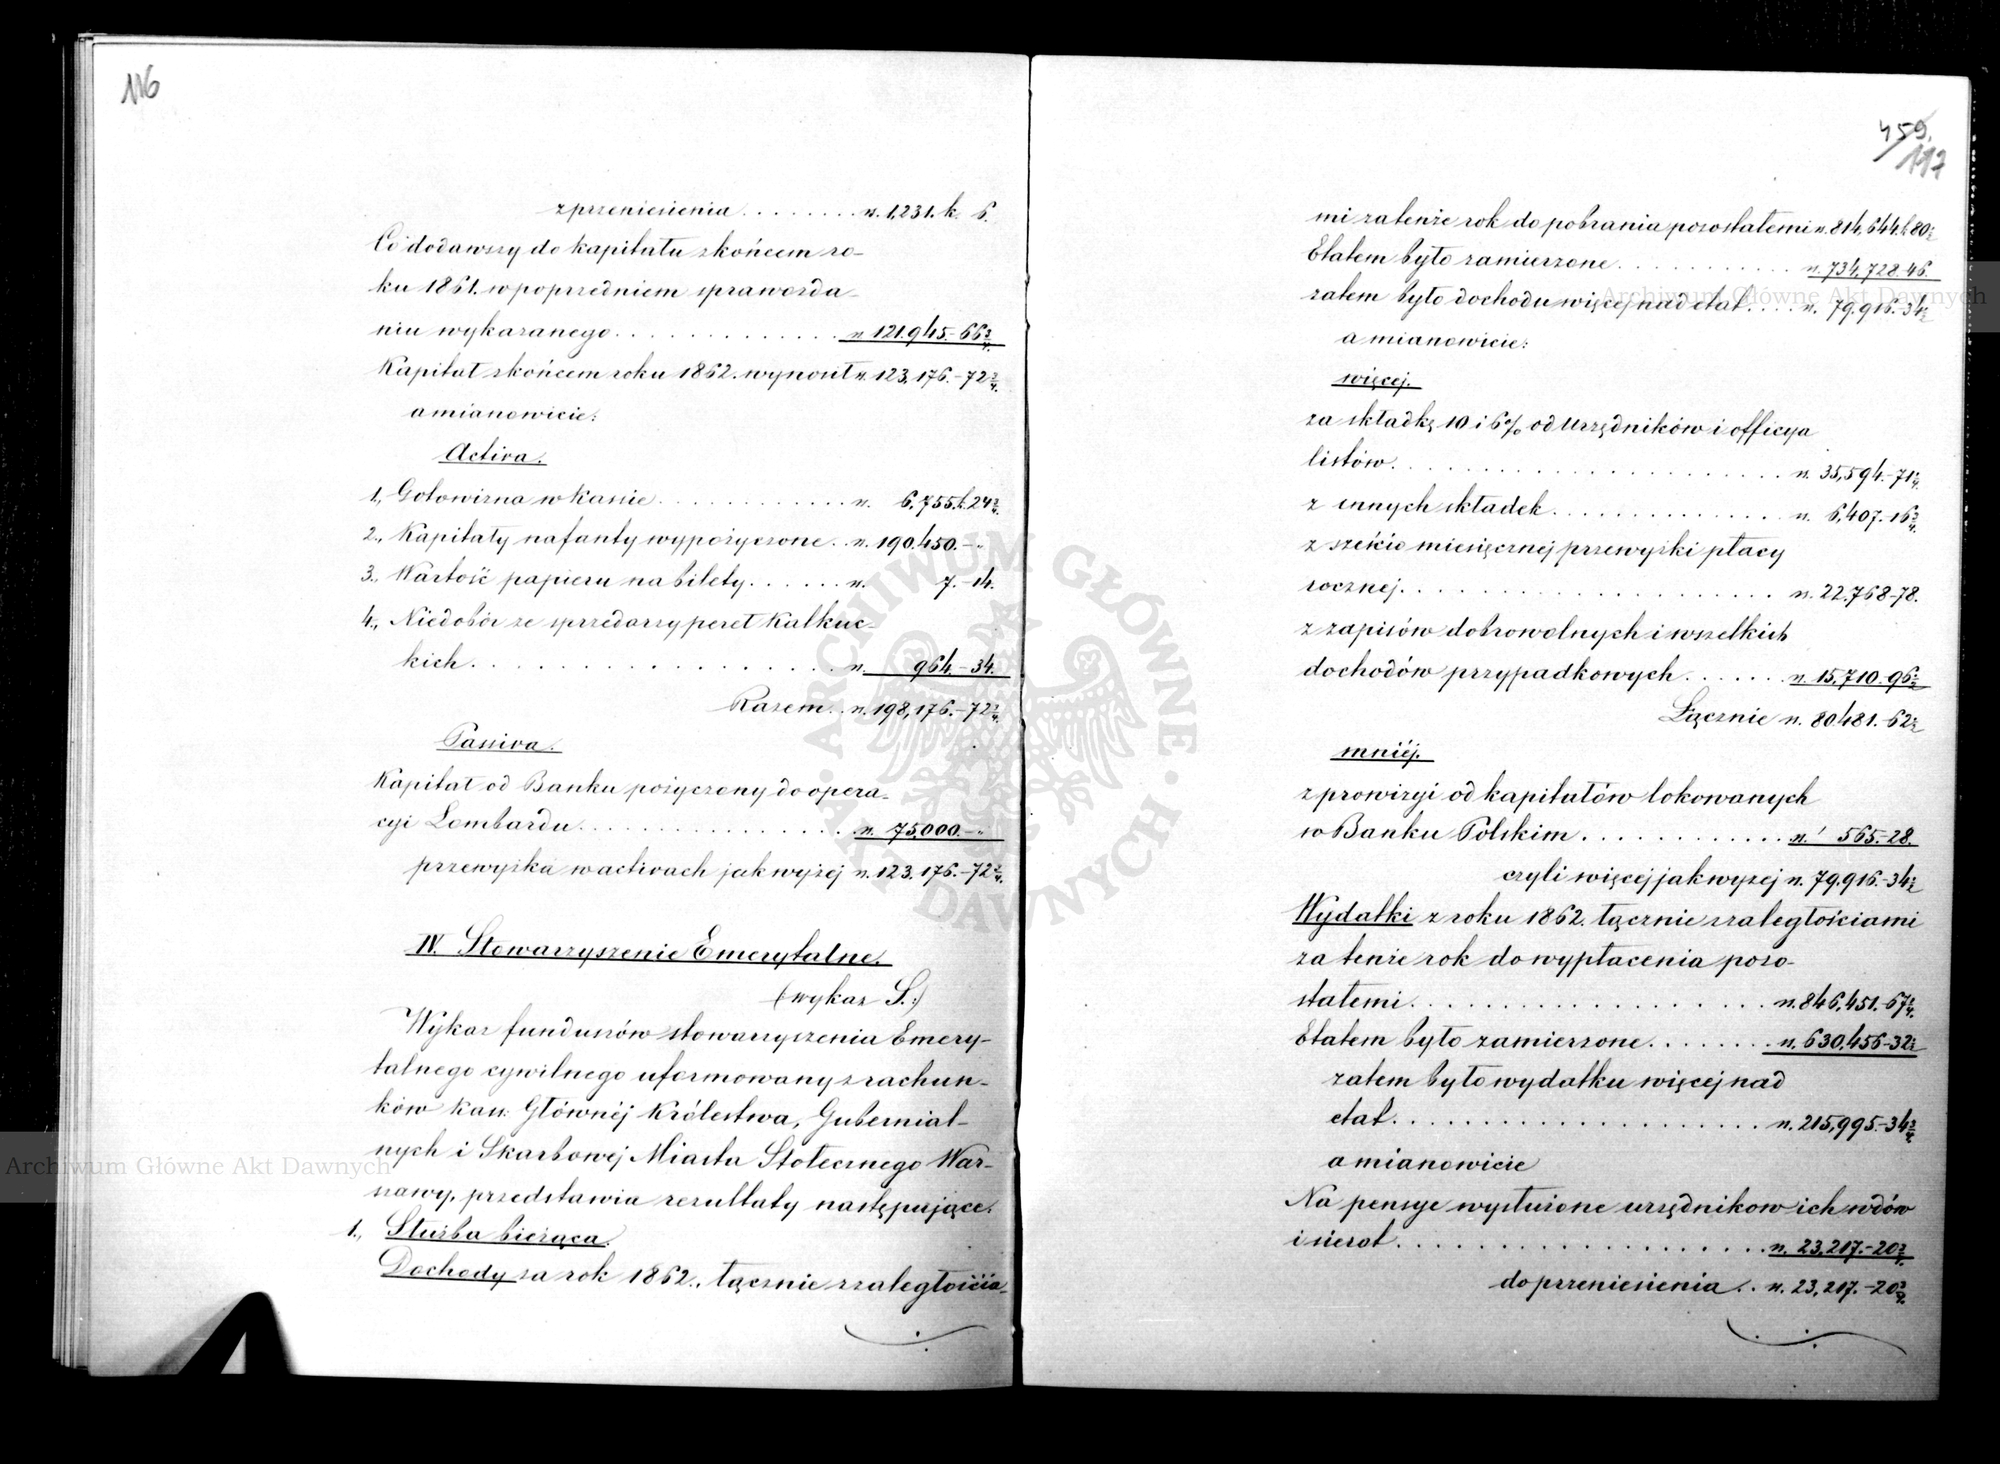 116
z przeniesienia . . . . . . . . r. 1,231. k. 6.
Co dodawszy do kapitału z końcem ro-
ku 1861. w poprzedniem sprawozda-
niu wykazanego . . . . . . . . . . . . . r. 121.945.-66 3/4.
Kapitał z końcem roku 1862. wynosił r. 123,176.-72 3/4.
a mianowicie:
Activa.
1., Gotowizna w kassie . . . . . . . . . . . . r. 6,755. k. 24 3/4.
2., Kapitały na fanty wypożyczone . . r. 190.450.-"
3., Wartość papieru na bilety . . . . . . r. 7.-14.
4., Niedobór ze sprzedarzy pereł Kalkuc-
kich . . . . . . . . . . . . . . . . . . r. 964.-34.
Razem . . r. 198,176.-72 3/4.
Passiva.
Kapitał od Banku pożyczony do opera-
cyi Lombardu . . . . . . . . . . . . . . . r. 75,000.-"
przewyżka w activach jak wyżej r. 123,176.-72 3/4.
IV. Stowarzyszenie Emerytalne.
(wykaz S.:)
Wykaz funduszów stowarzyszenia Emery-
talnego cywilnego uformowany z rachun-
ków Kass: Głównéj Królestwa, Gubernial-
nych i Skarbowej Miasta Stołecznego War-
szawy, przedstawia rezultaty następujące.
1., Służba bieżąca.
Dochody za rok 1862., łącznie z zaległościa-
459.
117
mi za tenże rok do pobrania pozostałemi r. 814,644. k. 80 1/2
Etatem było zamierzone . . . . . . . . . . . . r. 734,728.46.
zatem było dochodu więcej nad etat . . . . r. 79.916.-34 1/2
a mianowicie:
więcej.
za składkę 10 i 6% od Urzędników i officya
listów . . . . . . . . . . . . . . . . . . . . . . . r. 35,594.-71 1/4.
z innych składek . . . . . . . . . . . . . . r. 6,407.-16 3/4.
z sześcio miesięcznej przewyżki płacy
rocznej . . . . . . . . . . . . . . . . . . . . r. 22.768-78.
z zapisów dobrowolnych i wszelkich
dochodów przypadkowych . . . . . . . r. 15,710.-96 1/2
Łącznie r. 80.481.-62 1/2
mniéj.
z prowizyi od kapitałów lokowanych
w Banku Polskim . . . . . . . . . . . . r. 565.-28.
czyli więcej jak wyżej r. 79.916.-34 1/2
Wydatki z roku 1862. łącznie z zaległościami
za tenże rok do wypłacenia pozo-
stałemi . . . . . . . . . . . . . . . . . . . r. 846,451.-67 1/4.
Etatem było zamierzone . . . . . . . . r. 630.456-32 1/2
zatem było wydatku więcej nad
etat . . . . . . . . . . . . . . . . . . . . r. 215,995.-34 3/4.
a mianowicie
Na pensye wysłużone urzędnikow ich wdów
i sierot . . . . . . . . . . . . . . . . . . . . r. 23,217.-20 3/4.
do przeniesienia . . r. 23,217.-20 3/4.
ARCHIWUM GŁÓWNE AKT DAWNYCH
Archiwum Główne Akt Dawnych
Archiwum Główne Akt Dawnych